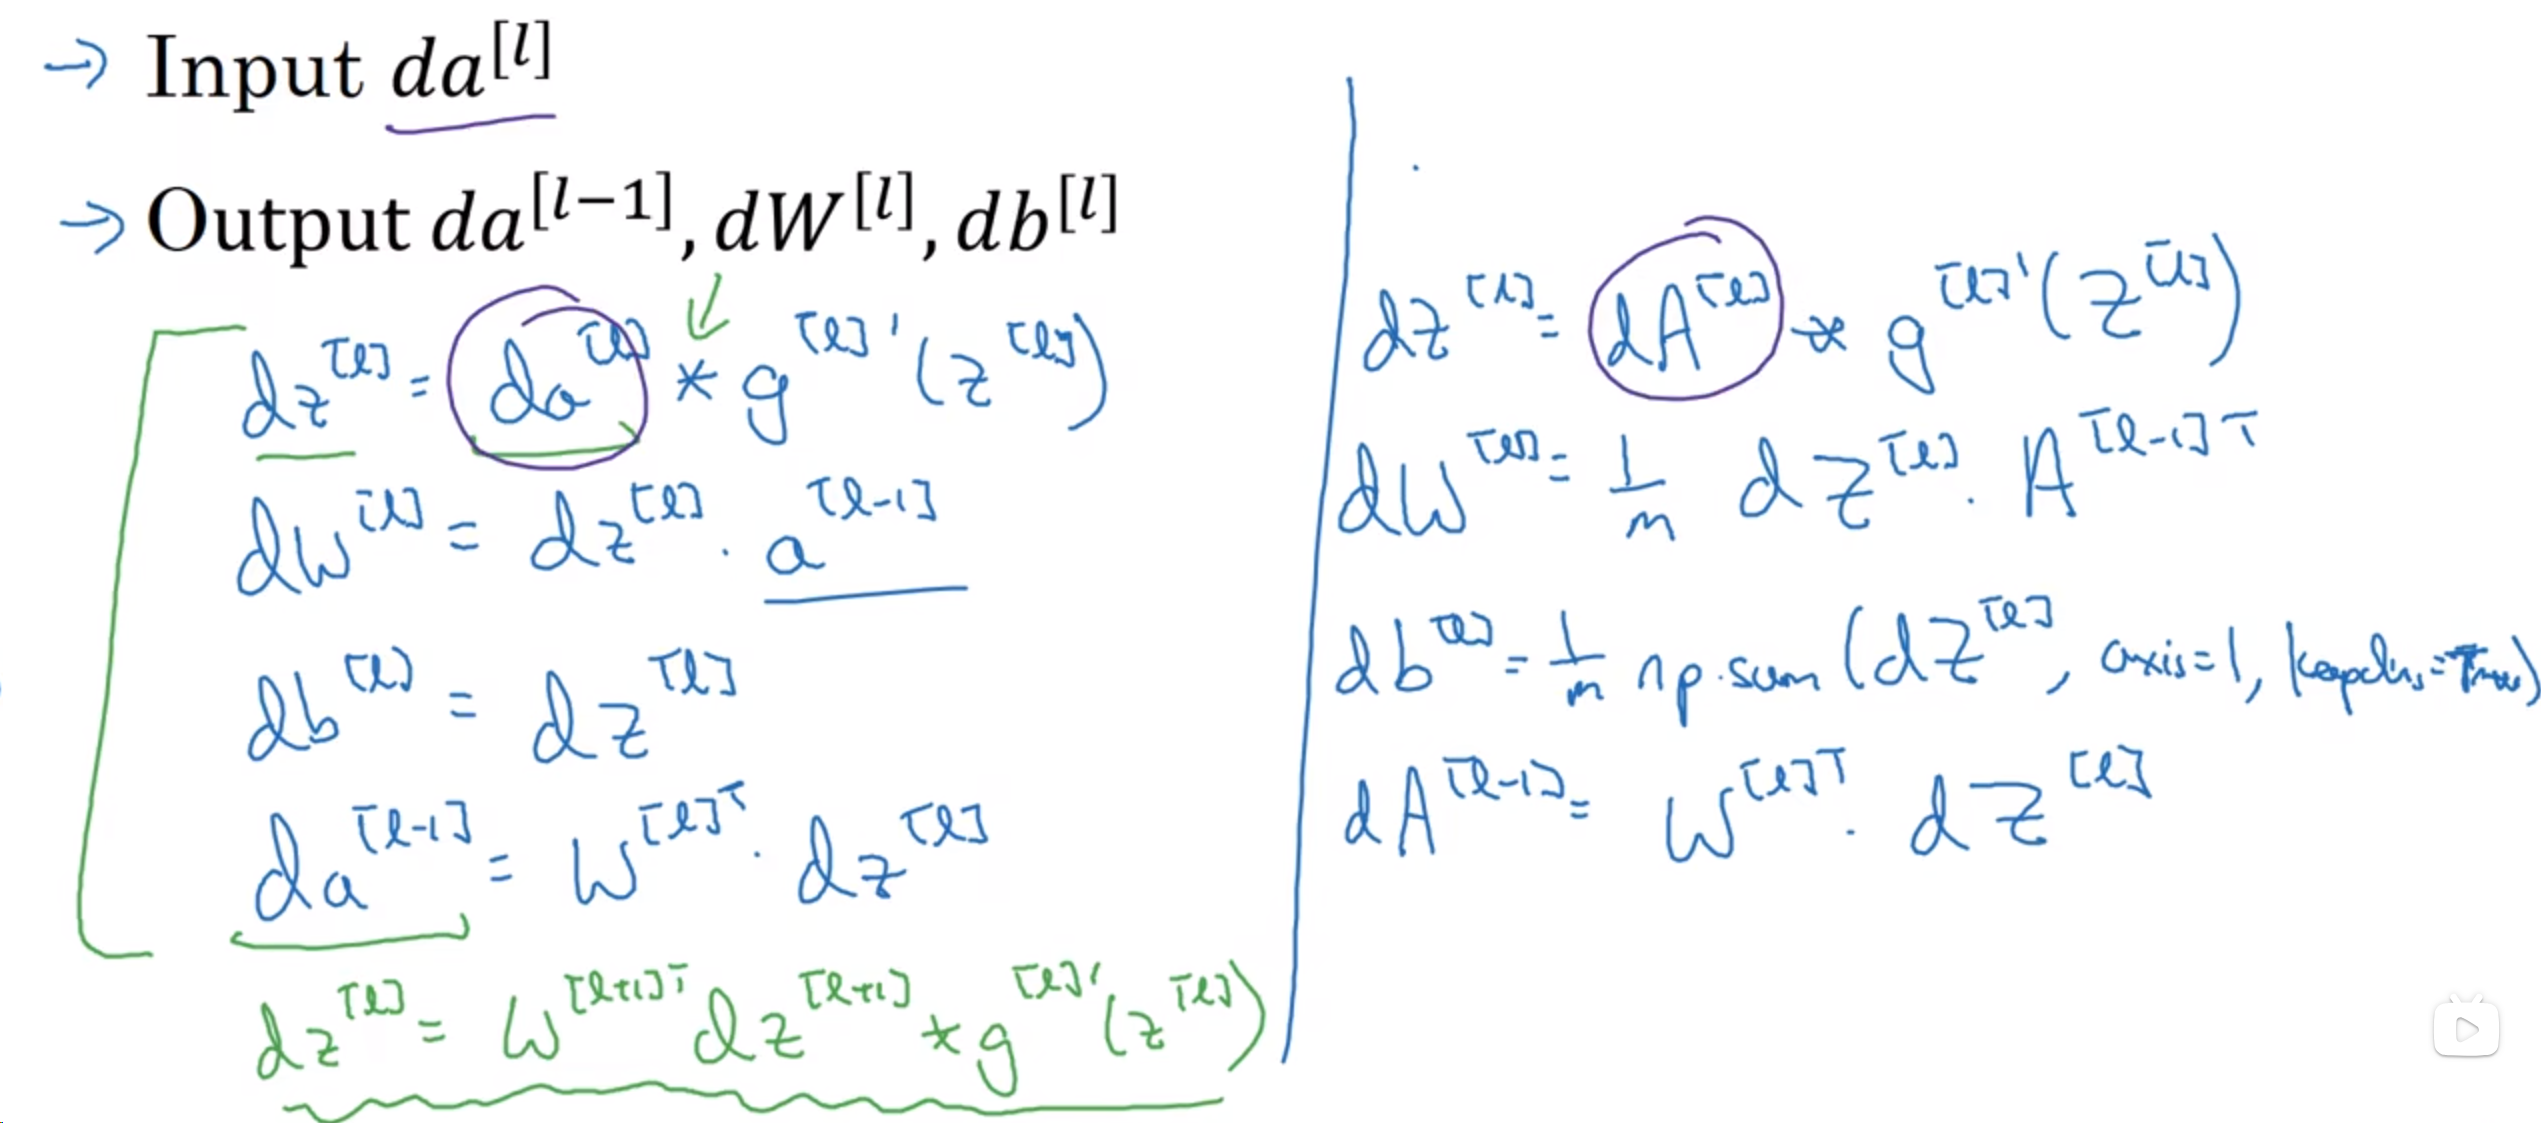 → Input da^[l]
→ Output da^[l−1], dW^[l], db^[l]
dz^[l] = da^[l] * g^[l]'(z^[l])
dW^[l] = dz^[l] · a^[l-1]
db^[l] = dz^[l]
da^[l-1] = W^[l]T · dz^[l]
dz^[l] = W^[l+1]T dz^[l+1] * g^[l]'(z^[l])
dZ^[l] = dA^[l] * g^[l]'(Z^[l])
dW^[l] = 1/m dZ^[l] · A^[l-1]T
db^[l] = 1/m np.sum(dZ^[l], axis=1, keepdims=True)
dA^[l-1] = W^[l]T · dZ^[l]